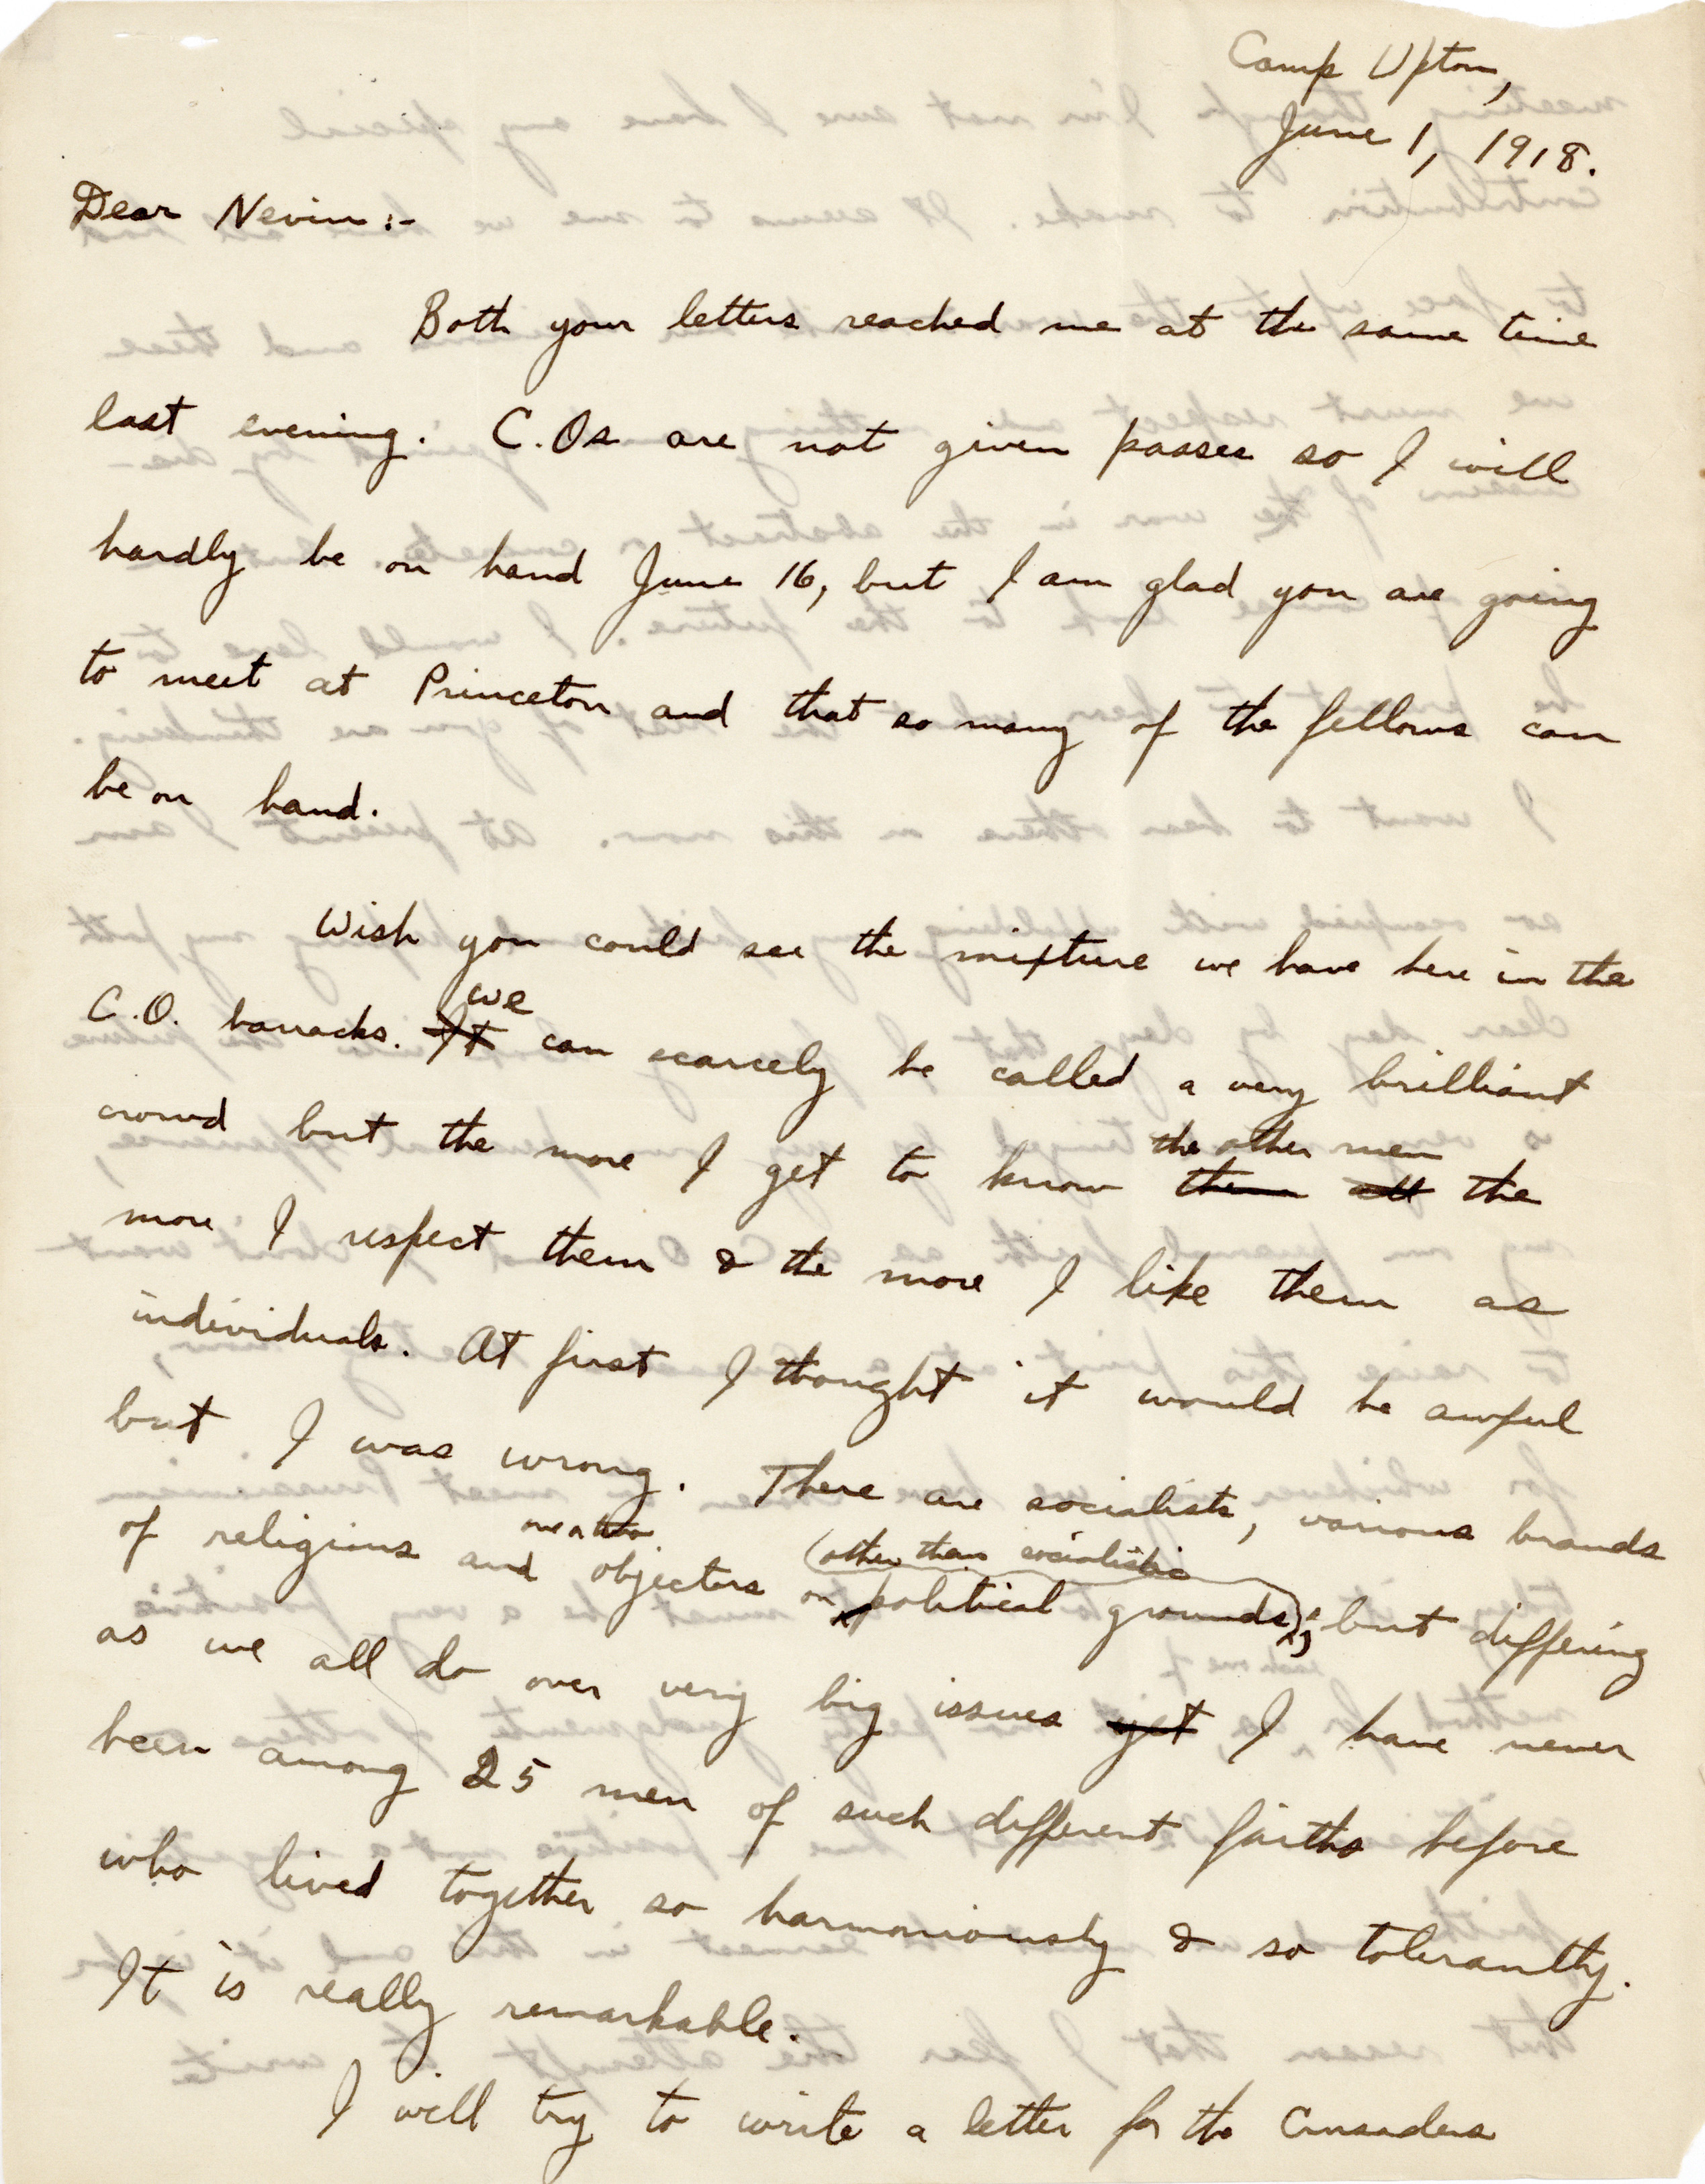 Camp Upton,
June 1, 1918.
Dear Nevin:-
Both your letters reached me at the same time
last evening. C.Os are not given passes so I will
hardly be on hand June 16, but I am glad you are going
to meet at Princeton and that so many of the fellows can
be on hand.
Wish you could see the mixture we have here in the
we
C.O. barracks. It can scarcely be called a very brilliant
the other men
crowd but the more I get to know them all the
more I respect them & the more I like them as
individuals. At first I thought it would be awful
but I was wrong. There are socialists, various brands
one or two (other than socialistic
of religions and objectors on political grounds); but differing
as we all do over very big issues yet I have never
been among 25 men of such different faiths before
who lived together so harmoniously & so tolerantly.
It is really remarkable.
I will try to write a letter for the Crusaders